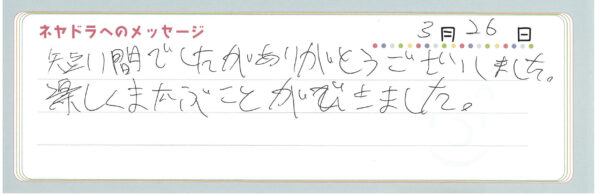 ネヤドラへのメッセージ
3月26日
短い間でしたがありがとうございました。
楽しくまなぶことができました。